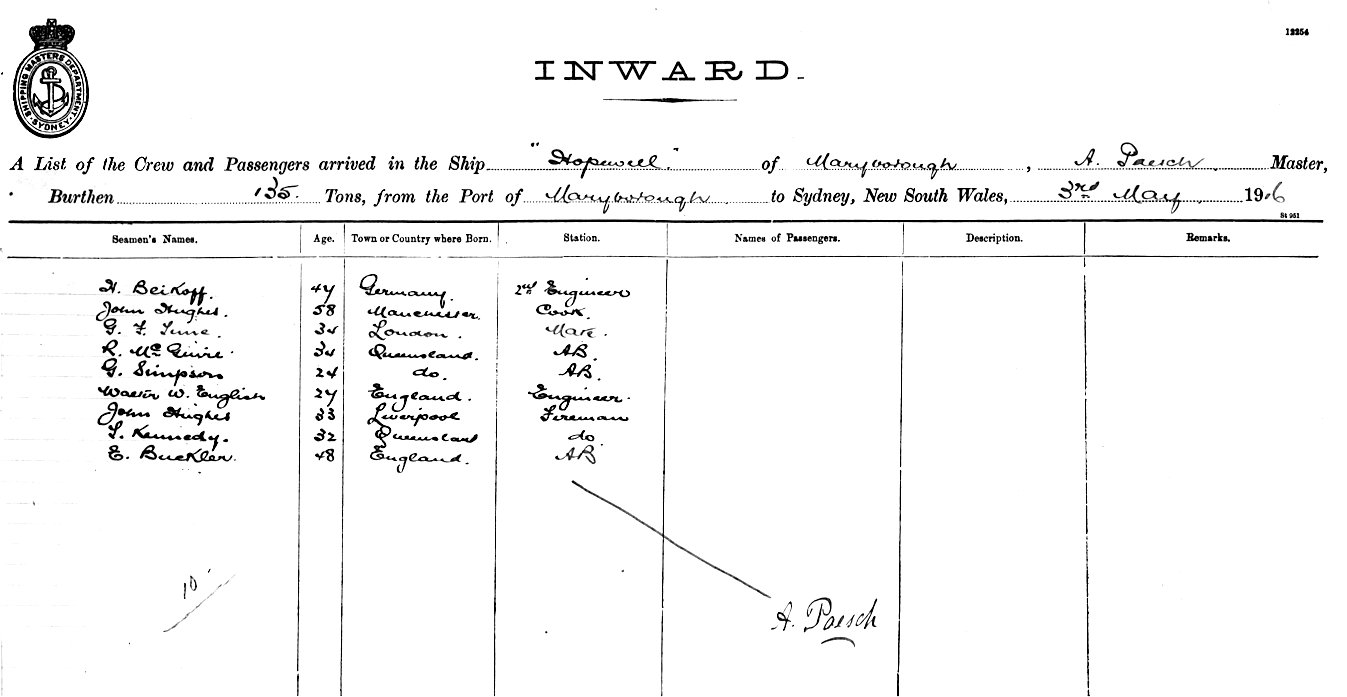 SHIPPING MASTERS DEPARTMENT.
SYDNEY
12254
INWARD.
A List of the Crew and Passengers arrived in the Ship "Hopewell" of Maryborough, A. Paesch Master,
Burthen 135. Tons, from the Port of Maryborough to Sydney, New South Wales, 3rd May 1906
St 951
Seamen's Names. Age. Town or Country where Born. Station. Names of Passengers. Description. Remarks.
H. Beikoff. 47 Germany. 2nd Engineer
John Hughes. 58 Manchester. Cook.
G. F. 34 London. Mate.
R. McGuire. 34 Queensland. AB.
G. Simpson 24 do. AB.
Walter W. English 27 England. Engineer.
John Hughes 33 Liverpool Fireman
Kennedy. 32 Queensland do.
E. Buckler. 48 England. AB
10
A. Paesch